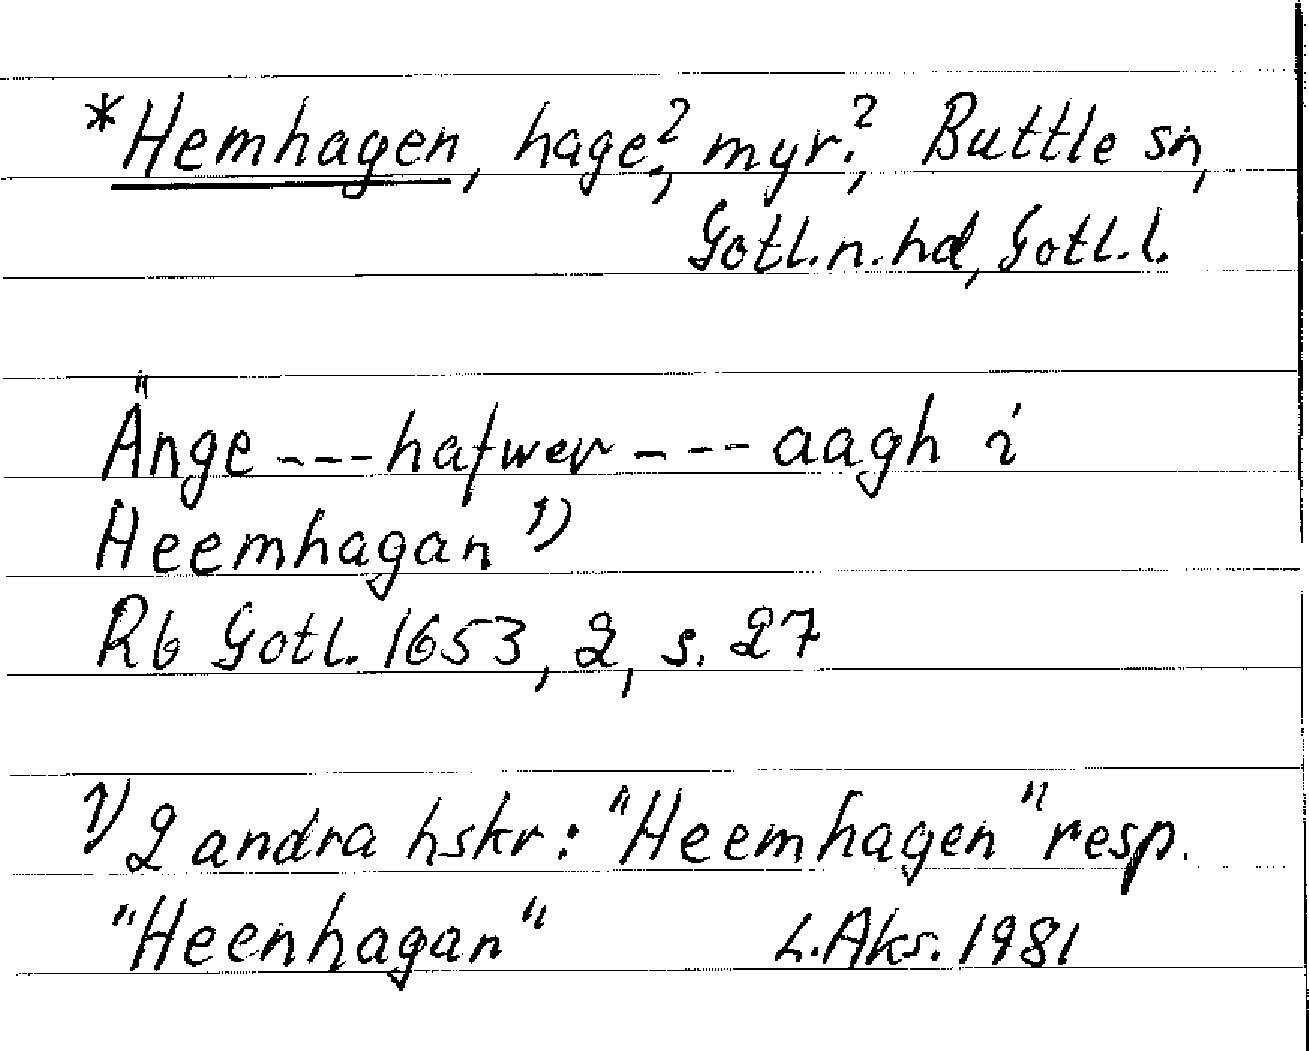 *Hemhagen, hage?, myr?, Buttle sn,
Gotl.n.hd, Gotl.l.
Änge ---hafwer ---aagh i
Heemhagan 1)
Rb Gotl. 1653, 2, s. 27
1) 2 andra hskr: "Heemhagen" resp.
"Heenhagan" L.Aks. 1981